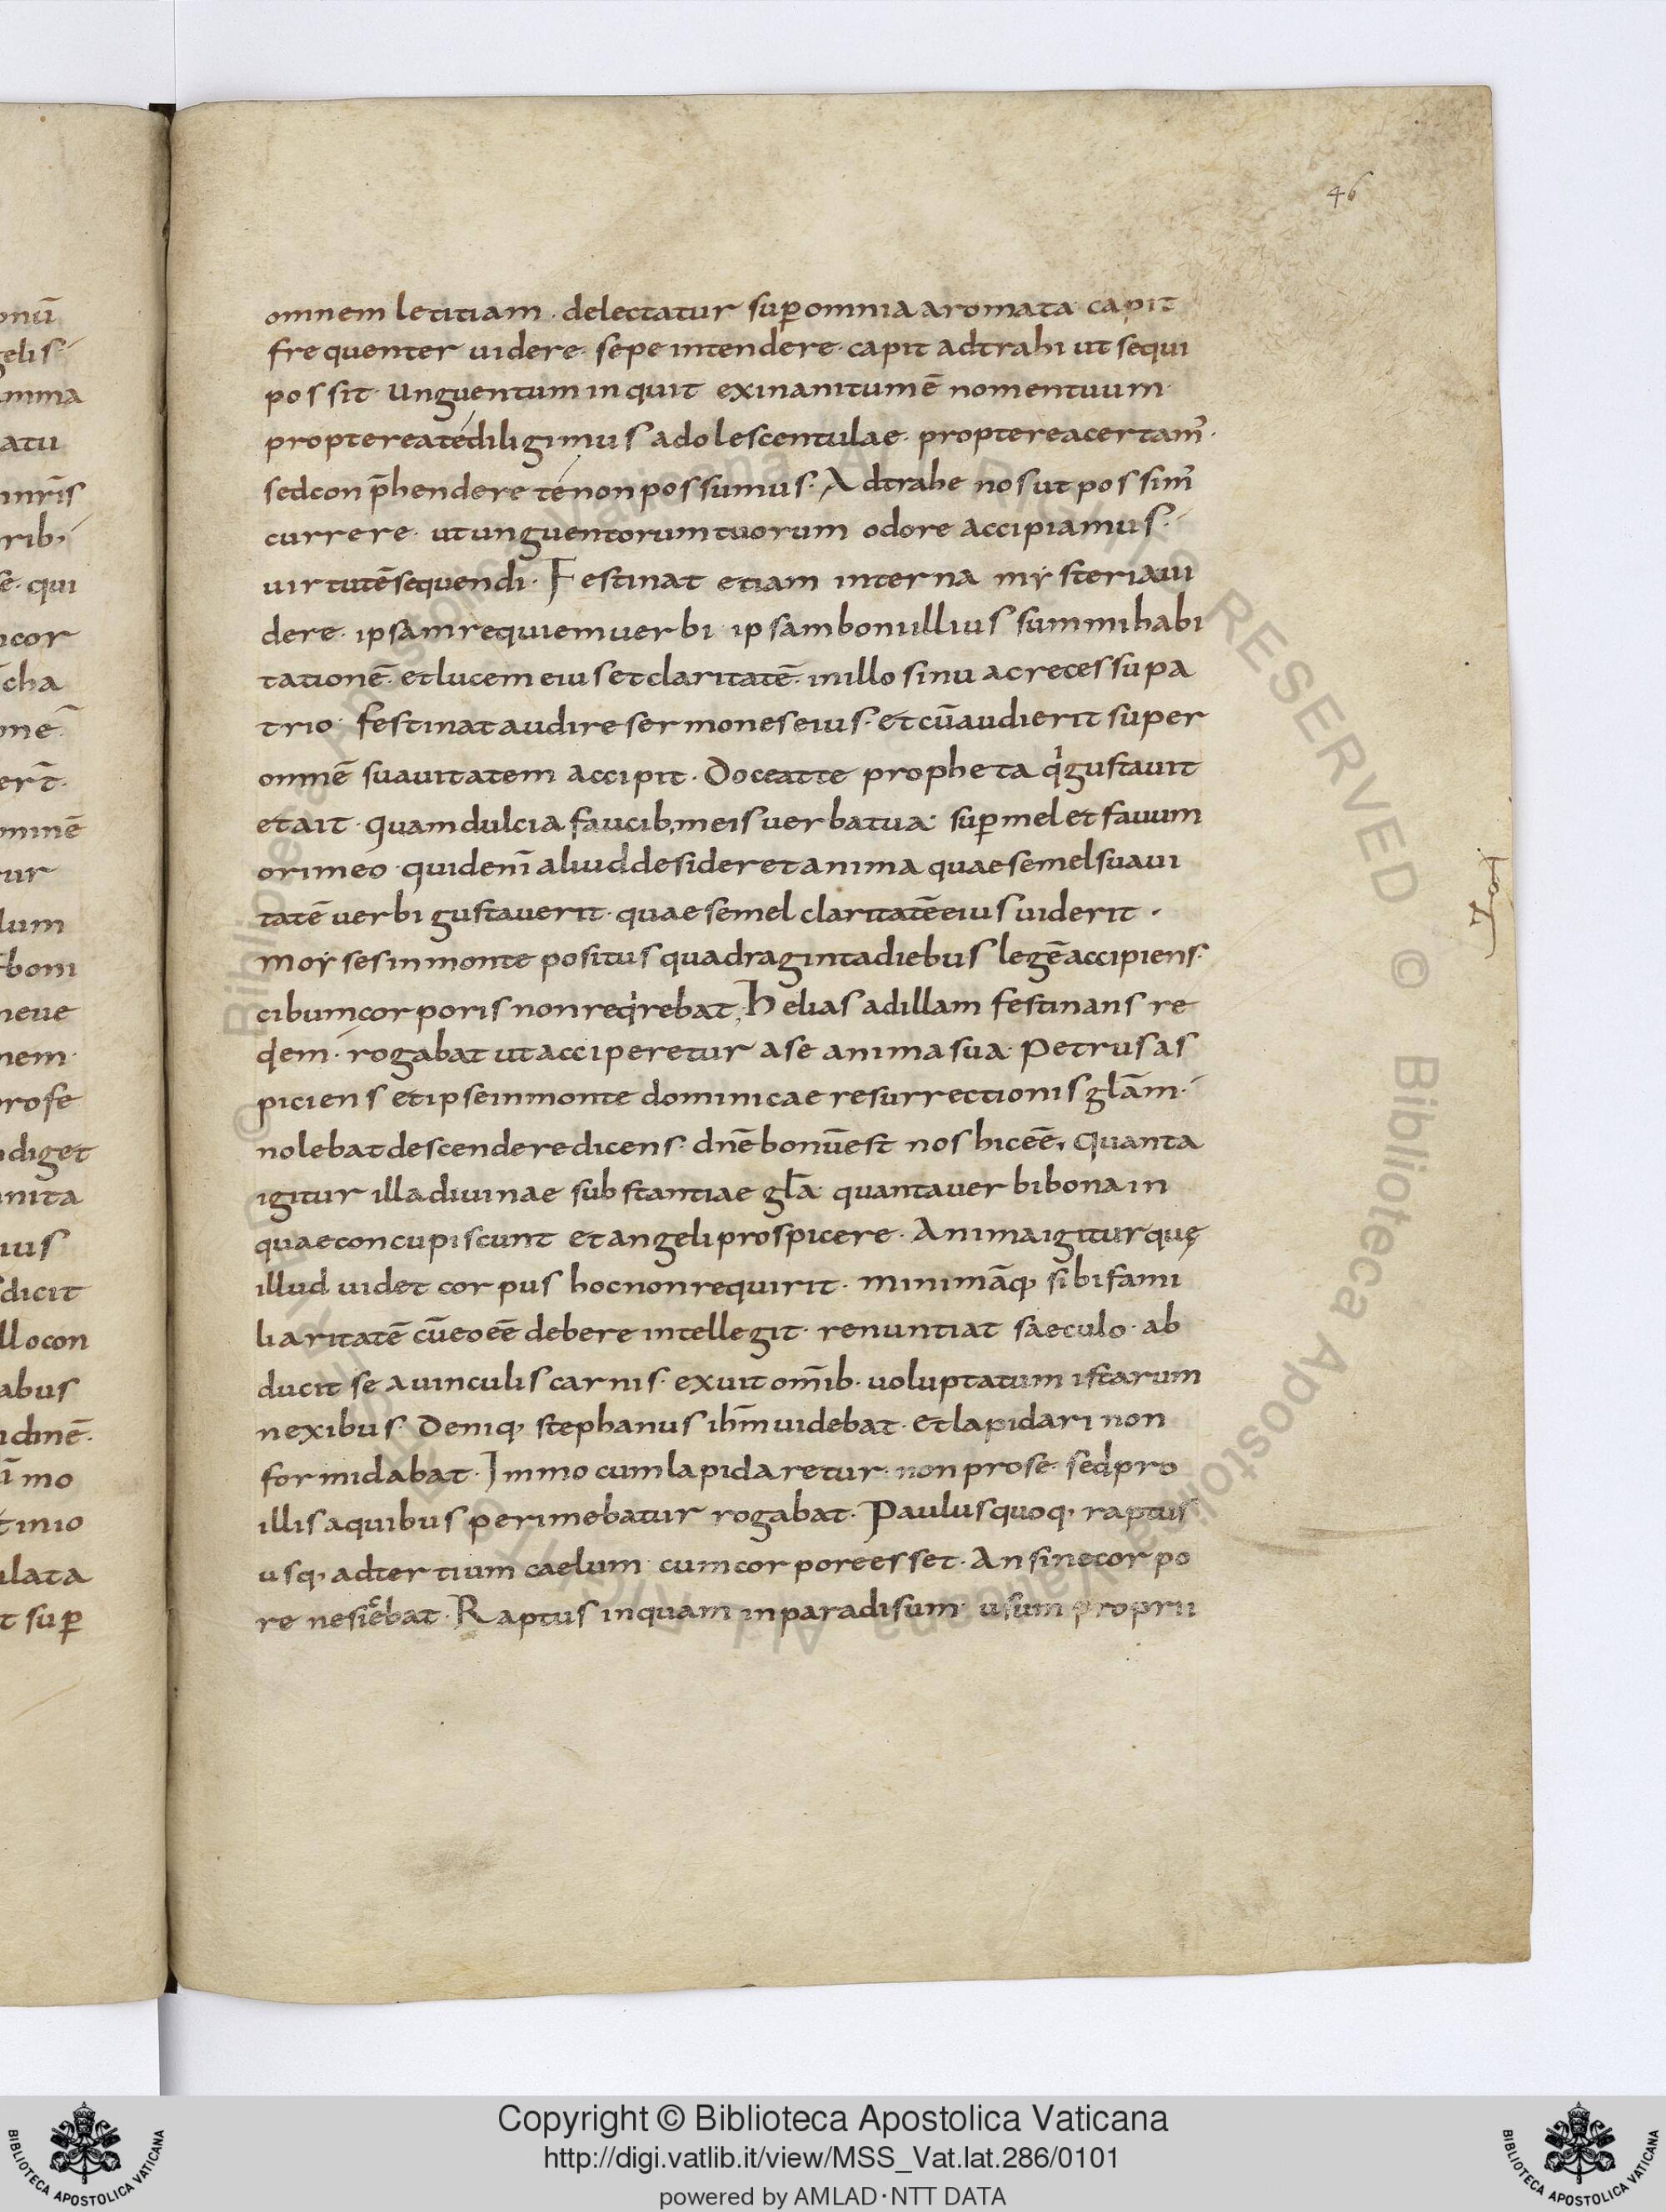 46
omnem letitiam · delectatur sup̄ omnia aromata · capit
frequenter uidere · sepe intendere · capit adtrahi ut sequi
possit · Unguentum inquit exinanitum ē nomen tuum ·
propterea té diligimus adolescentulae · propterea certam᾽ ·
sed con p̄hendere té non possumus · Adtrahe nos ut possim᾽
currere · ut unguentorum tuorum odore accipiamus ·
uirtutē sequendi · Festinat etiam interna mẏsteria ui
dere · ipsam requiem uerbi · ipsam boni illius summi habi
tationē · et lucem eius et claritatē · in illo sinu ac recessu pa
trio · festinat audire sermones eius · et cū audierit super
omnē suauitatem accipit · Doceat te propheta qͥ gustauit
et ait · Quam dulcia faucib; meis uerba tua · sup̄ mel et fauum
ori meo · quid eni̅ aliud desideret anima quae semel suaui
tatē uerbi gustauerit · quae semel claritatē eius uiderit ·
Moẏses in monte positus quadraginta diebus legē accipiens ·
cibum corporis non reqͥrebat, Helias ad illam festinans re
qͥem · rogabat ut acciperetur a se anima sua · Petrus as
piciens et ipse in monte dominicae resurrectionis gl̄am ·
nolebat descendere dicens · dn̄e bonū est nos hic eē, Quanta
igitur illa diuinae substantiae gl̄a · quanta uerbi bona in
quae concupiscunt et angeli prospicere · Anima igitur quę
illud uidet corpus hoc non requirit · minimāq, sibi fami
liaritatē cū eo eē debere intellegit · renuntiat saeculo · ab
ducit se a uinculis carnis · exuit om̄ib · uoluptatum istarum
nexibus · Deniq, stephanus ih̄m uidebat · et lapidari non
formidabat · Immo cum lapidaretur · non pro se · sed pro
illis a quibus perimebatur rogabat · Paulus quoq, raptus
usq, ad tertium caelum · cum corpore esset · An sine corpo
re nesiᶜebat · Raptus inquam in paradisum · usum proprii
onū
gelis ·
atu
rib,
se · qui
cor
cha
onē
ominē
tur
lum
boni
neue
nem
profe
diget
nita
ius
dicit
llo con
abus
idinē ·
mo
tinio
ulata
t sup̄
© Biblioteca Apostolica Vaticana ALL RIGHTS RESERVED
Copyright © Biblioteca Apostolica Vaticana
http://digi.vatlib.it/view/MSS_Vat.lat.286/0101
powered by AMLAD·NTT DATA
BIBLIOTECA APOSTOLICA VATICANA
BIBLIOTECA APOSTOLICA VATICANA